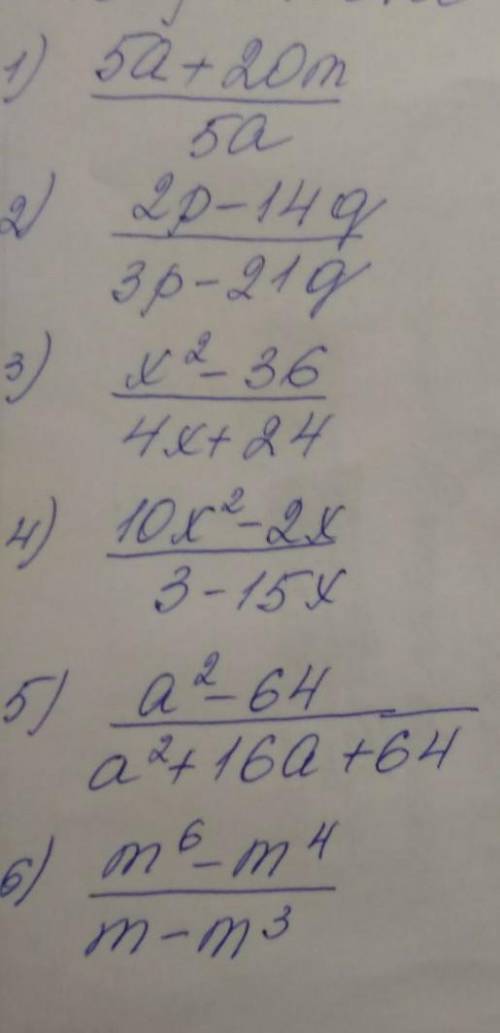 1) 5a + 20m
5a
2) 2p - 14q
3p - 21q
3) x² - 36
4x + 24
4) 10x² - 2x
3 - 15x
5) a² - 64
a² + 16a + 64
6) m⁶ - m⁴
m - m³